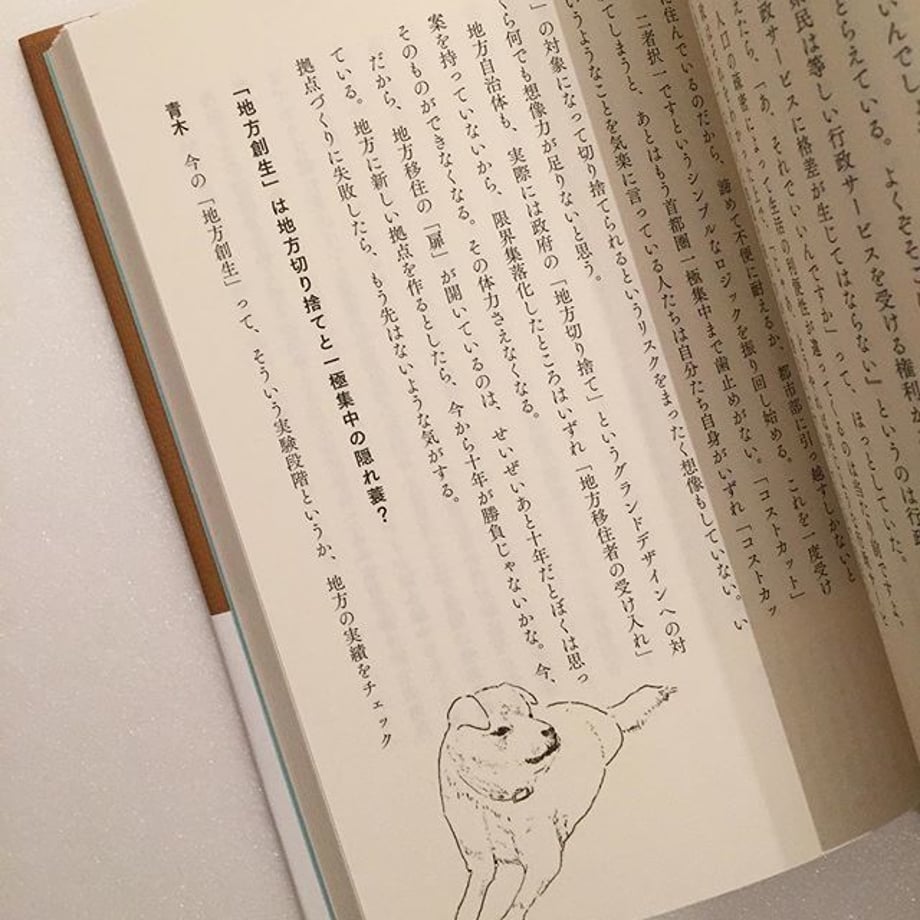 いんでし
とらえている。よくぞ
県民は等しい行政サービスを受ける権利が
政サービスに格差が生じてはならない』というのは行政
えたら、「あ、それでいいんですか」って、ほっとしていた。
に住んでいるのだから、諦めて不便に耐えるか、都市部に引っ越すしかないと
二者択一ですというシンプルなロジックを振り回し始める。これを一度受け
てしまうと、あとはもう首都圏一極集中まで歯止めがない。「コストカット」
いうようなことを気楽に言っている人たちは自分たち自身がいずれ「コストカッ
」の対象になって切り捨てられるというリスクをまったく想像もしていない。い
くら何でも想像力が足りないと思う。
地方自治体も、実際には政府の「地方切り捨て」というグランドデザインへの対
案を持っていないから、限界集落化したところはいずれ「地方移住者の受け入れ」
そのものができなくなる。その体力さえなくなる。
だから、地方移住の「扉」が開いているのは、せいぜいあと十年だとぼくは思っ
ている。地方に新しい拠点を作るとしたら、今から十年が勝負じゃないかな。今、
拠点づくりに失敗したら、もう先はないような気がする。
「地方創生」は地方切り捨てと一極集中の隠れ蓑？
青木 今の「地方創生」って、そういう実験段階というか、地方の実績をチェック